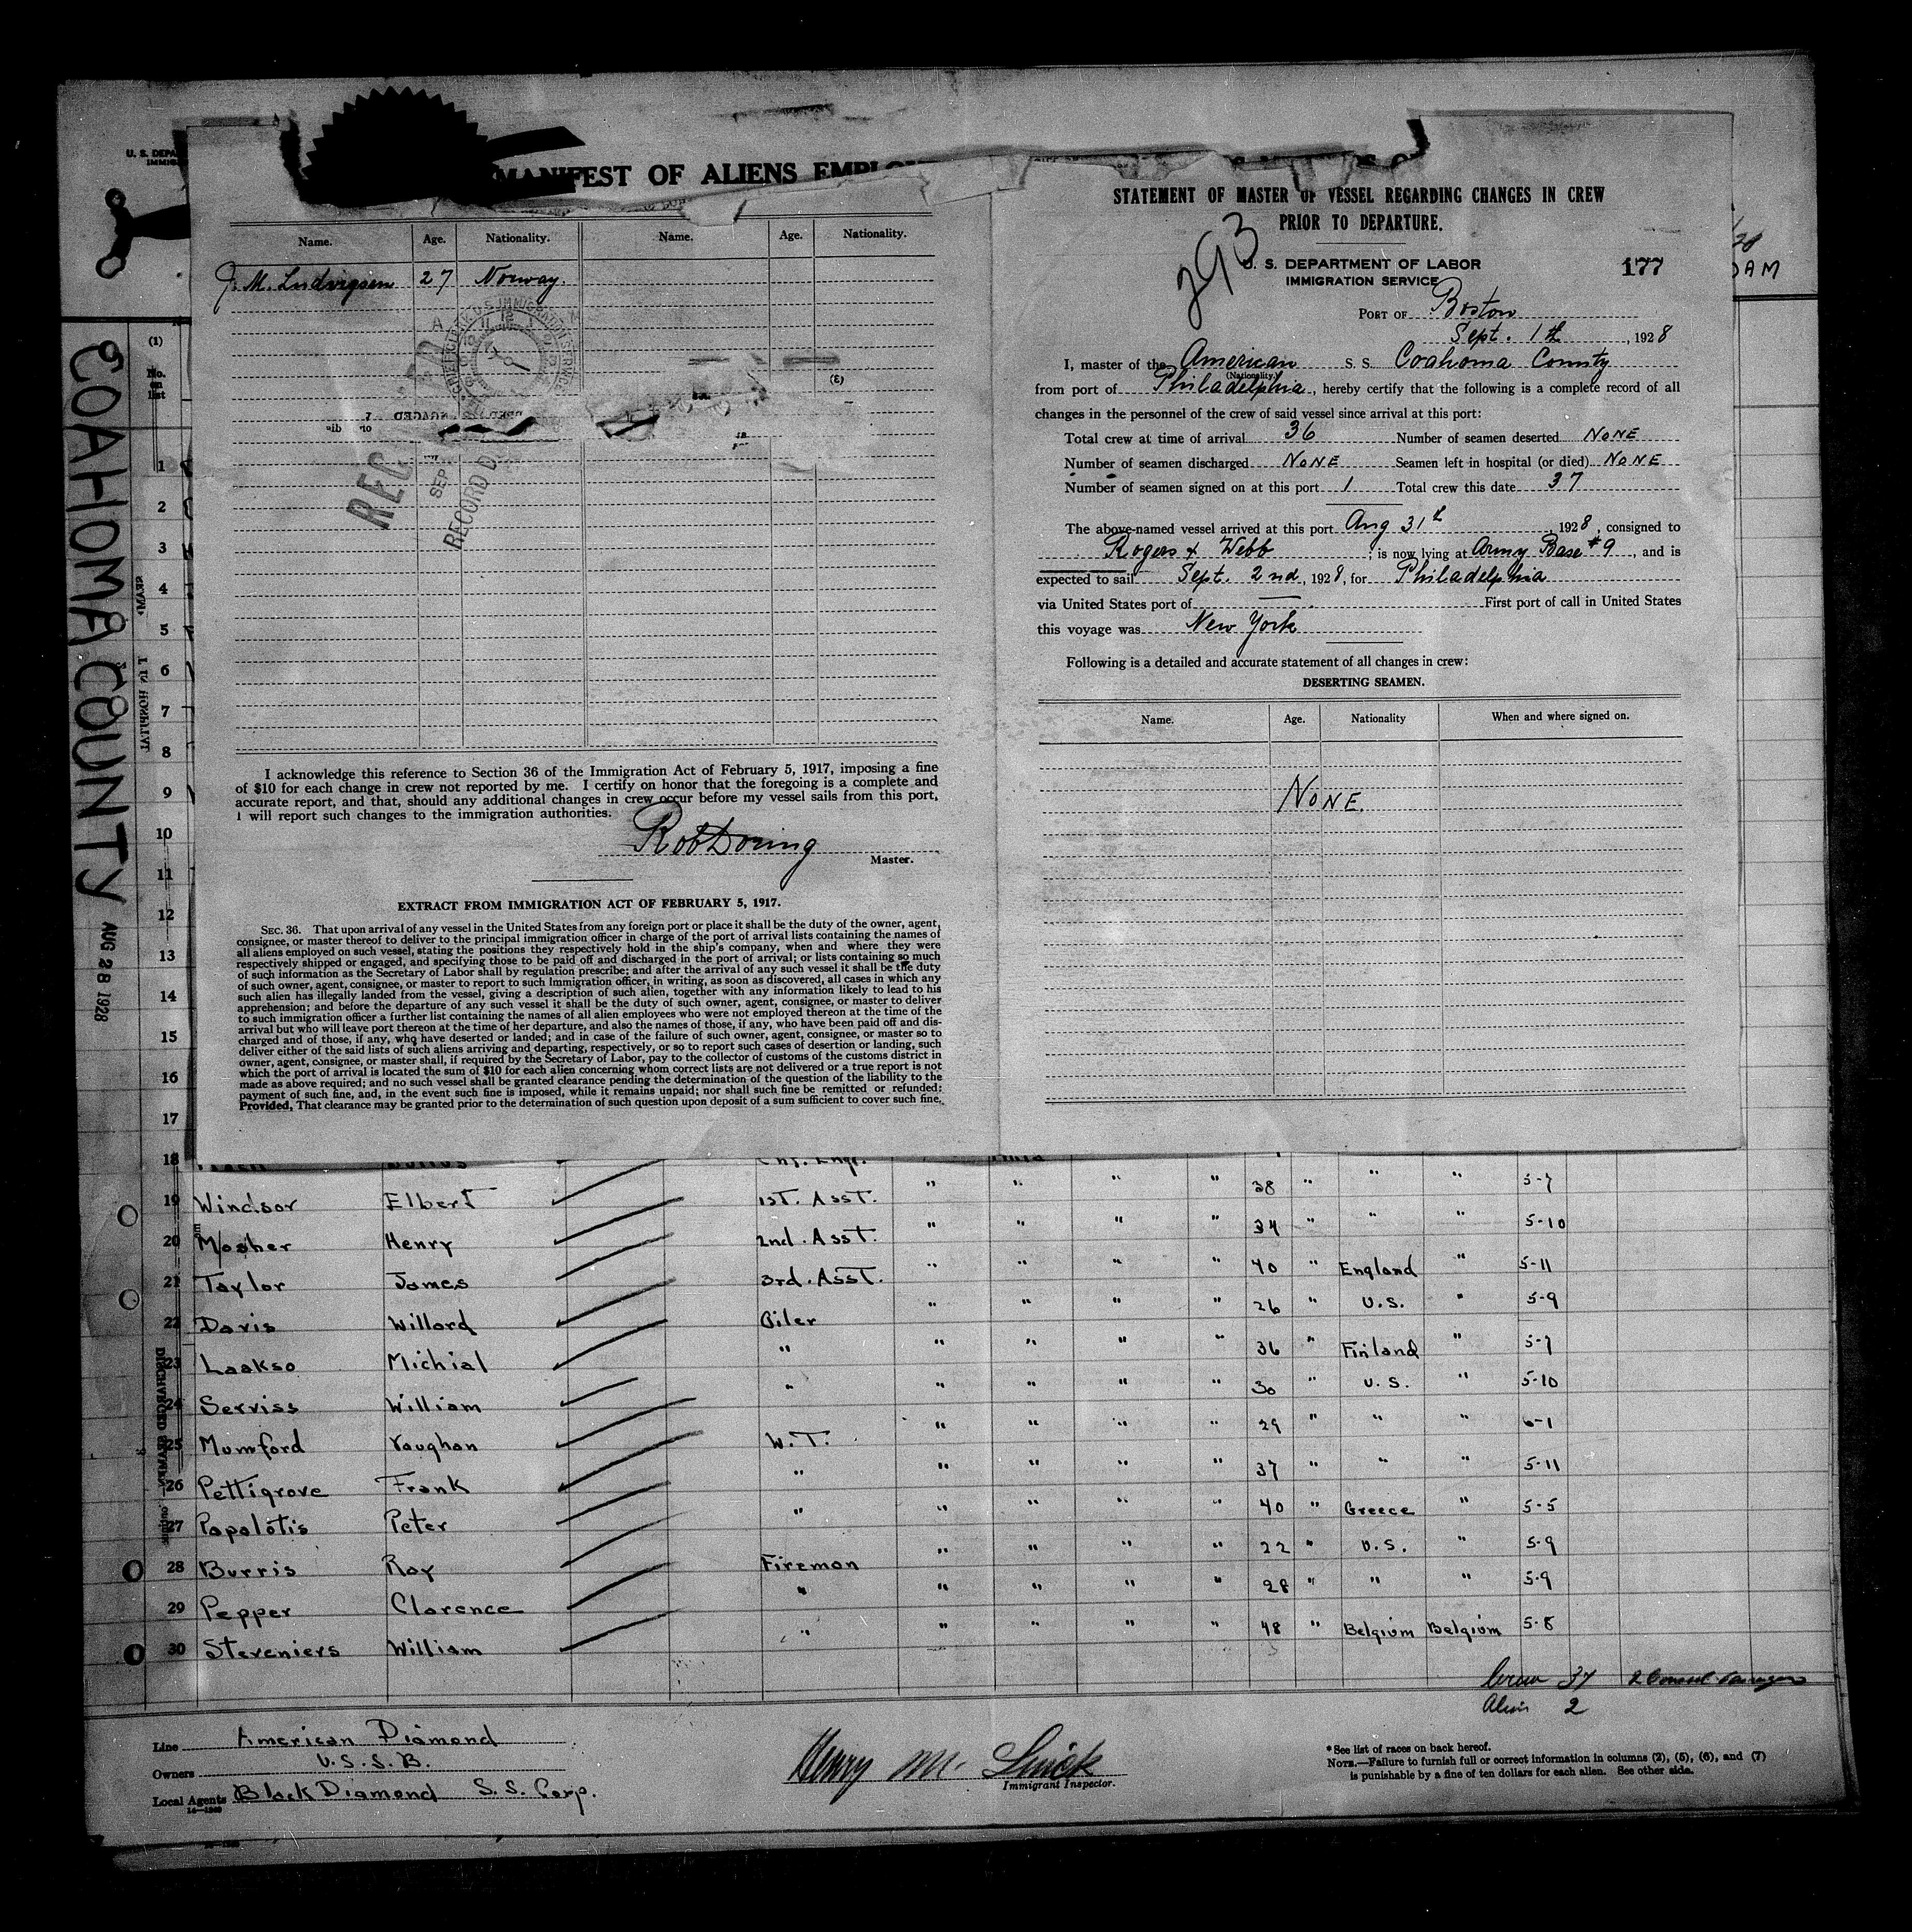 U. S. DEPA
IMMIG
MANIFEST OF ALIENS EMPLO
Name. Age. Nationality. Name. Age. Nationality.
J. M. Ludvigsen 27 Norway.
(3)
ENGAGED
REC
SEP
RECORD D
I acknowledge this reference to Section 36 of the Immigration Act of February 5, 1917, imposing a fine
of $10 for each change in crew not reported by me. I certify on honor that the foregoing is a complete and
accurate report, and that, should any additional changes in crew occur before my vessel sails from this port,
I will report such changes to the immigration authorities.
Rob Doring
Master.
EXTRACT FROM IMMIGRATION ACT OF FEBRUARY 5, 1917.
SEC. 36. That upon arrival of any vessel in the United States from any foreign port or place it shall be the duty of the owner, agent,
consignee, or master thereof to deliver to the principal immigration officer in charge of the port of arrival lists containing the names of
all aliens employed on such vessel, stating the positions they respectively hold in the ship's company, when and where they were
respectively shipped or engaged, and specifying those to be paid off and discharged in the port of arrival; or lists containing so much
of such information as the Secretary of Labor shall by regulation prescribe; and after the arrival of any such vessel it shall be the duty
of such owner, agent, consignee, or master to report to such Immigration officer, in writing, as soon as discovered, all cases in which any
such alien has illegally landed from the vessel, giving a description of such alien, together with any information likely to lead to his
apprehension; and before the departure of any such vessel it shall be the duty of such owner, agent, consignee, or master to deliver
to such immigration officer a further list containing the names of all alien employees who were not employed thereon at the time of the
arrival but who will leave port thereon at the time of her departure, and also the names of those, if any, who have been paid off and dis-
charged and of those, if any, who have deserted or landed; and in case of the failure of such owner, agent, consignee, or master so to
deliver either of the said lists of such aliens arriving and departing, respectively, or so to report such cases of desertion or landing, such
owner, agent, consignee, or master shall, if required by the Secretary of Labor, pay to the collector of customs of the customs district in
which the port of arrival is located the sum of $10 for each alien concerning whom correct lists are not delivered or a true report is not
made as above required; and no such vessel shall be granted clearance pending the determination of the question of the liability to the
payment of such fine, and, in the event such fine is imposed, while it remains unpaid; nor shall such fine be remitted or refunded:
Provided, That clearance may be granted prior to the determination of such question upon deposit of a sum sufficient to cover such fine.
STATEMENT OF MASTER OF VESSEL REGARDING CHANGES IN CREW
PRIOR TO DEPARTURE.
293
U. S. DEPARTMENT OF LABOR
IMMIGRATION SERVICE
177
DAM
PORT OF Boston
Sept. 1th, 1928
I, master of the American S. S. Coahoma County
(Nationality)
from port of Philadelphia, hereby certify that the following is a complete record of all
changes in the personnel of the crew of said vessel since arrival at this port:
Total crew at time of arrival 36 Number of seamen deserted NONE
Number of seamen discharged NONE Seamen left in hospital (or died) NONE
Number of seamen signed on at this port 1 Total crew this date 37
The above-named vessel arrived at this port Aug 31th, 1928, consigned to
Rogers & Webb; is now lying at Army Base #9, and is
expected to sail Sept. 2nd, 1928, for Philadelphia
via United States port of — . First port of call in United States
this voyage was New York
Following is a detailed and accurate statement of all changes in crew:
DESERTING SEAMEN.
Name. Age. Nationality When and where signed on.
NONE.
COAHOMA COUNTY
AUG 28 1928
(1)
No. on list
1
2
3
4
5
6
7
8
9
10
11
12
13
14
15
16
17
18 Chf. Engr.
19 Windsor Elbert 1st. Asst. " " " " 38 " " " 5-7
20 Mosher Henry 2nd. Asst. " " " " 34 " " " 5-10
21 Taylor James 3rd. Asst. " " " " 40 " England " 5-11
22 Davis Willard Oiler " " " " 26 " U.S. " 5-9
23 Laakso Michial " " " " " 36 " Finland " 5-7
24 Serviss William " " " " " 30 " U.S. " 5-10
25 Mumford Vaughan W.T. " " " " 29 " " " 6-1
26 Pettigrove Frank " " " " " 37 " " " 5-11
27 Papalotis Peter " " " " " 40 " Greece " 5-5
28 Burris Ray Fireman " " " " 22 " U.S. " 5-9
29 Pepper Clarence " " " " " 28 " " " 5-9
30 Steveniers William " " " " " 48 " Belgium Belgium 5-8
Crew 37
Alien 2
Line American Diamond
Owners U.S.S.B.
Local Agents Black Diamond S.S. Corp.
14—1240
Henry M.
Immigrant Inspector.
* See list of races on back hereof.
NOTE.—Failure to furnish full or correct information in columns (2), (5), (6), and (7)
is punishable by a fine of ten dollars for each alien. See other side.